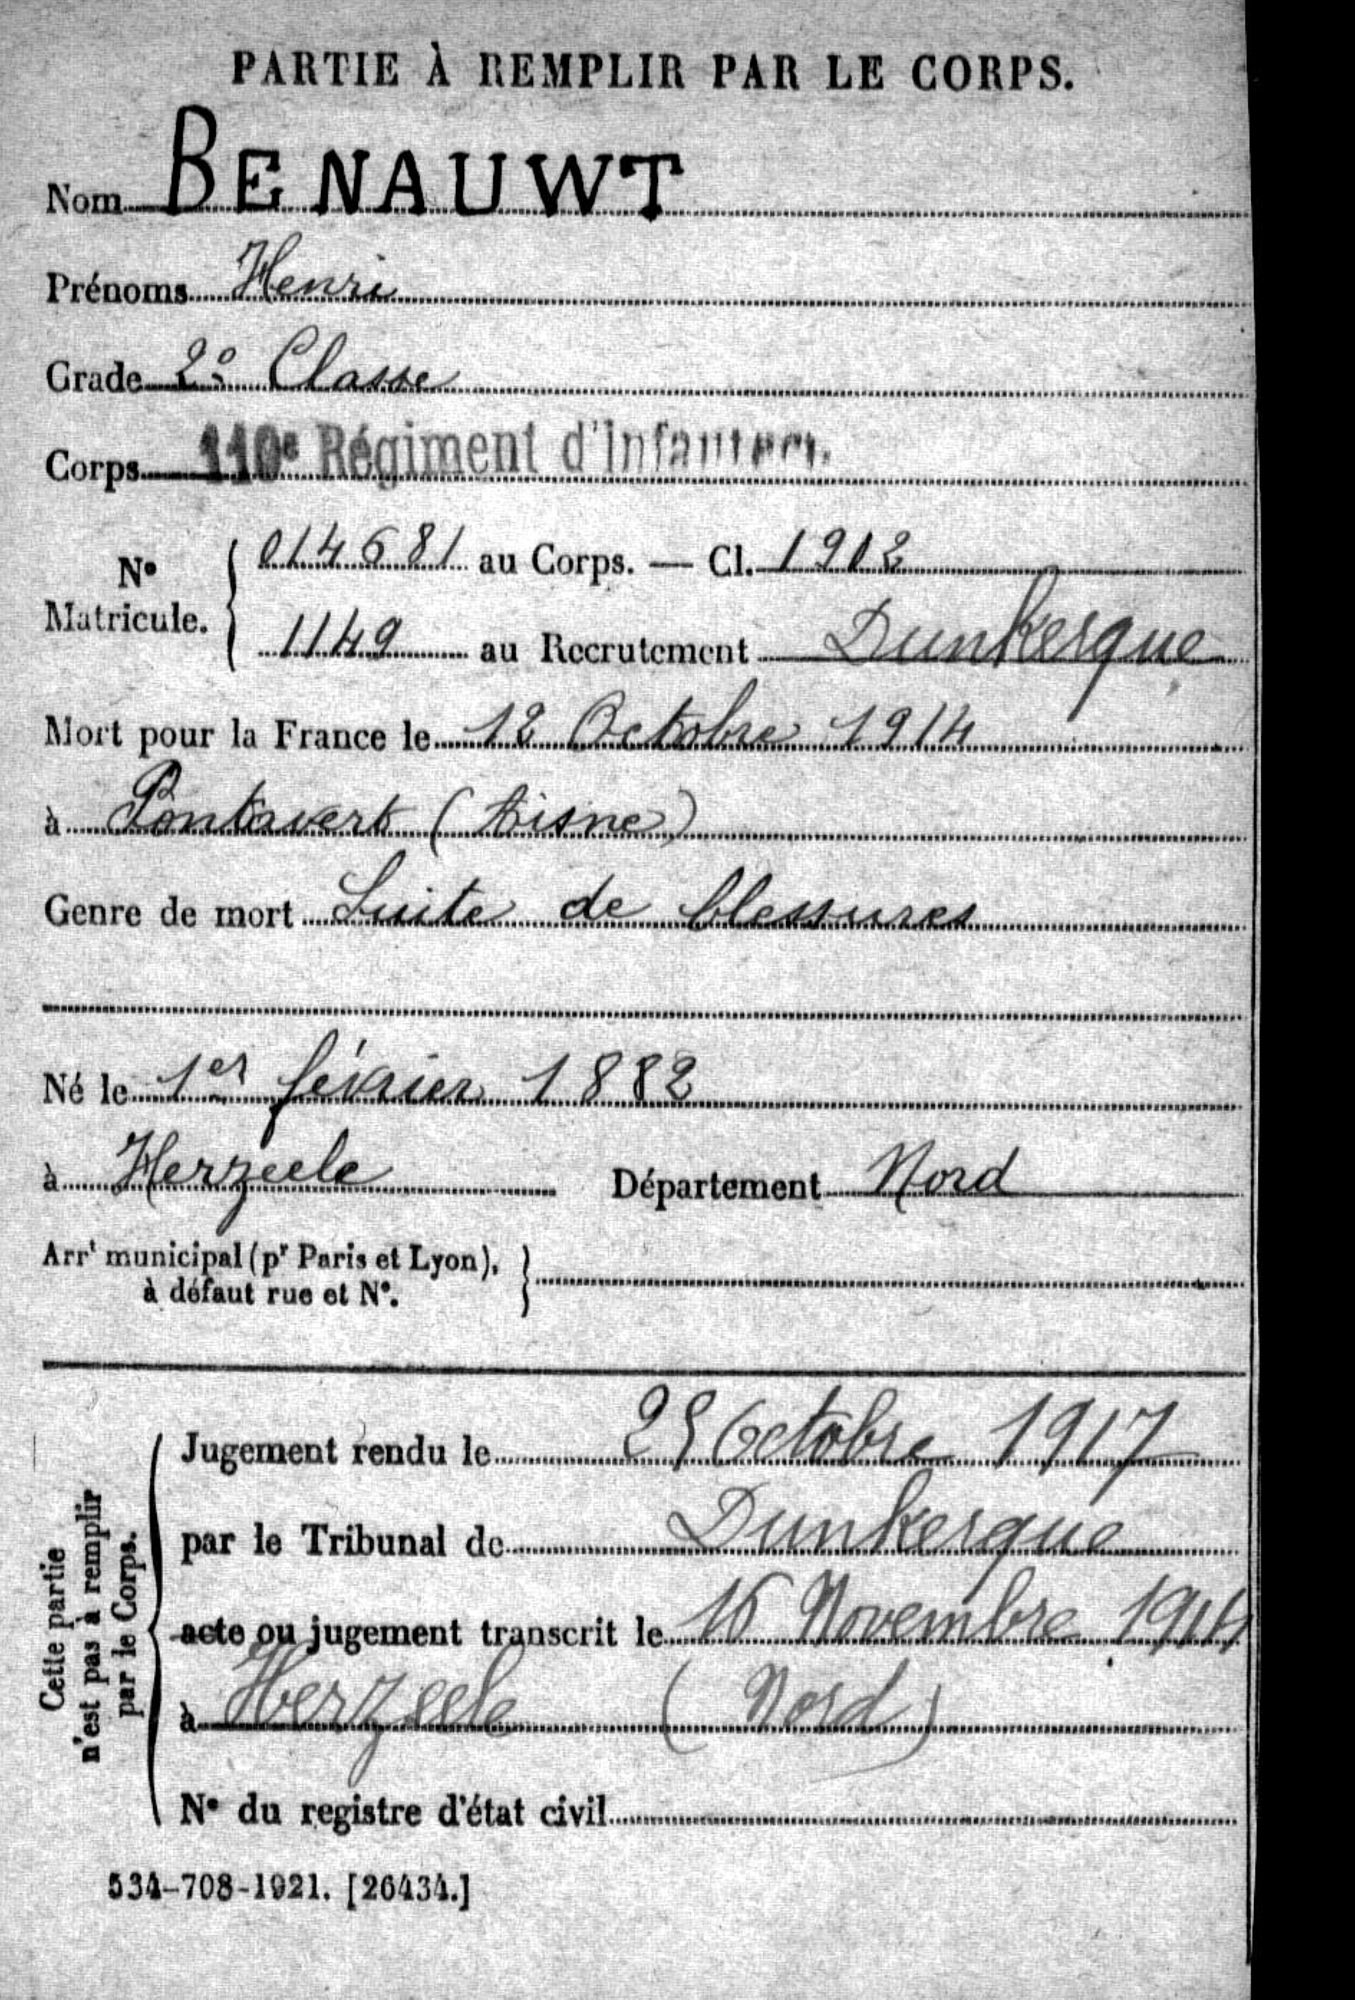 PARTIE À REMPLIR PAR LE CORPS.
Nom BENAUWT
Prénoms Henri
Grade 2e Classe
Corps 110e Régiment d'Infanterie.
No Matricule. { 014681 au Corps. — Cl. 1902
1149 au Recrutement Dunkerque
Mort pour la France le 12 Octobre 1914
à Pontavert (Aisne)
Genre de mort Suite de blessures
Né le 1er février 1882
à Herzeele Département Nord
Arrt municipal (pr Paris et Lyon), }
à défaut rue et No.
Cette partie
n'est pas à remplir
par le Corps.
Jugement rendu le 25 Octobre 1917
par le Tribunal de Dunkerque
acte ou jugement transcrit le 16 Novembre
à Herzeele (Nord)
No du registre d'état civil
534-708-1921. [26434.]